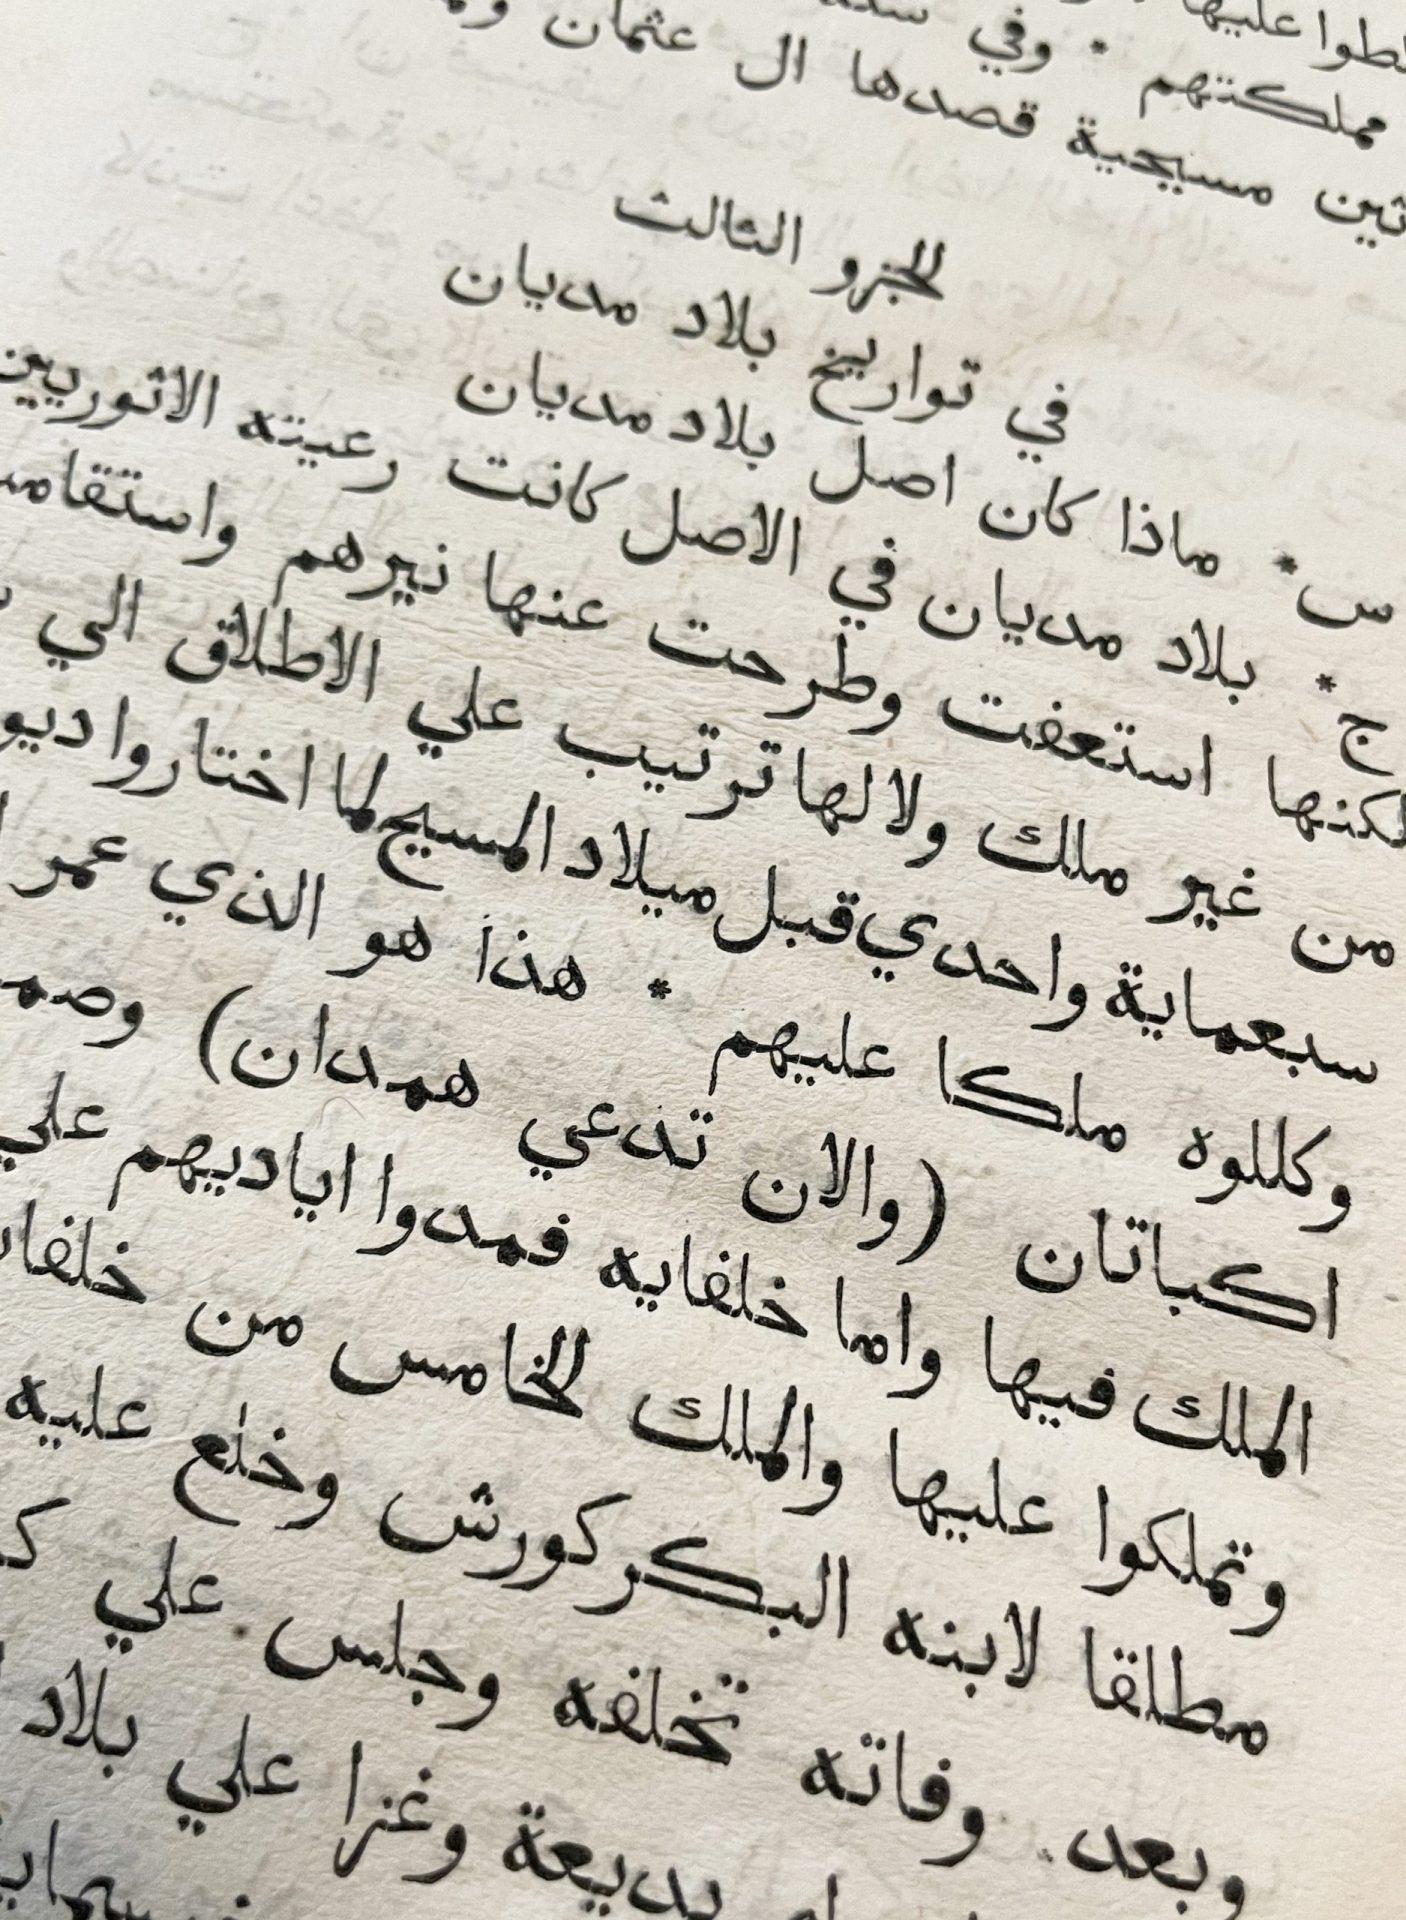 عليها
مملكتهم * وفي سنة
مسيحية قصدها ال عثمان
الجزو الثالث
في تواريخ بلاد مديان
س * ماذا كان اصل بلاد مديان
ج * بلاد مديان في الاصل كانت رعيته الاثوريين
لكنها استعفت وطرحت عنها نيرهم
من غير ملك ولا لها ترتيب علي الاطلاق الي
سبعماية واحدي قبل ميلاد المسيح لما اختاروا
وكللوه ملكا عليهم * هذا هو الذي عمر
اكباتان (والان تدعي همدان)
الملك فيها واما خلفايه فمدوا اياديهم علي
وتملكوا عليها والملك الخامس من
مطلقا لابنه البكر كورش وخلع عليه
وبعد وفاته تخلفه وجلس علي
بديعة وغزا علي بلاد